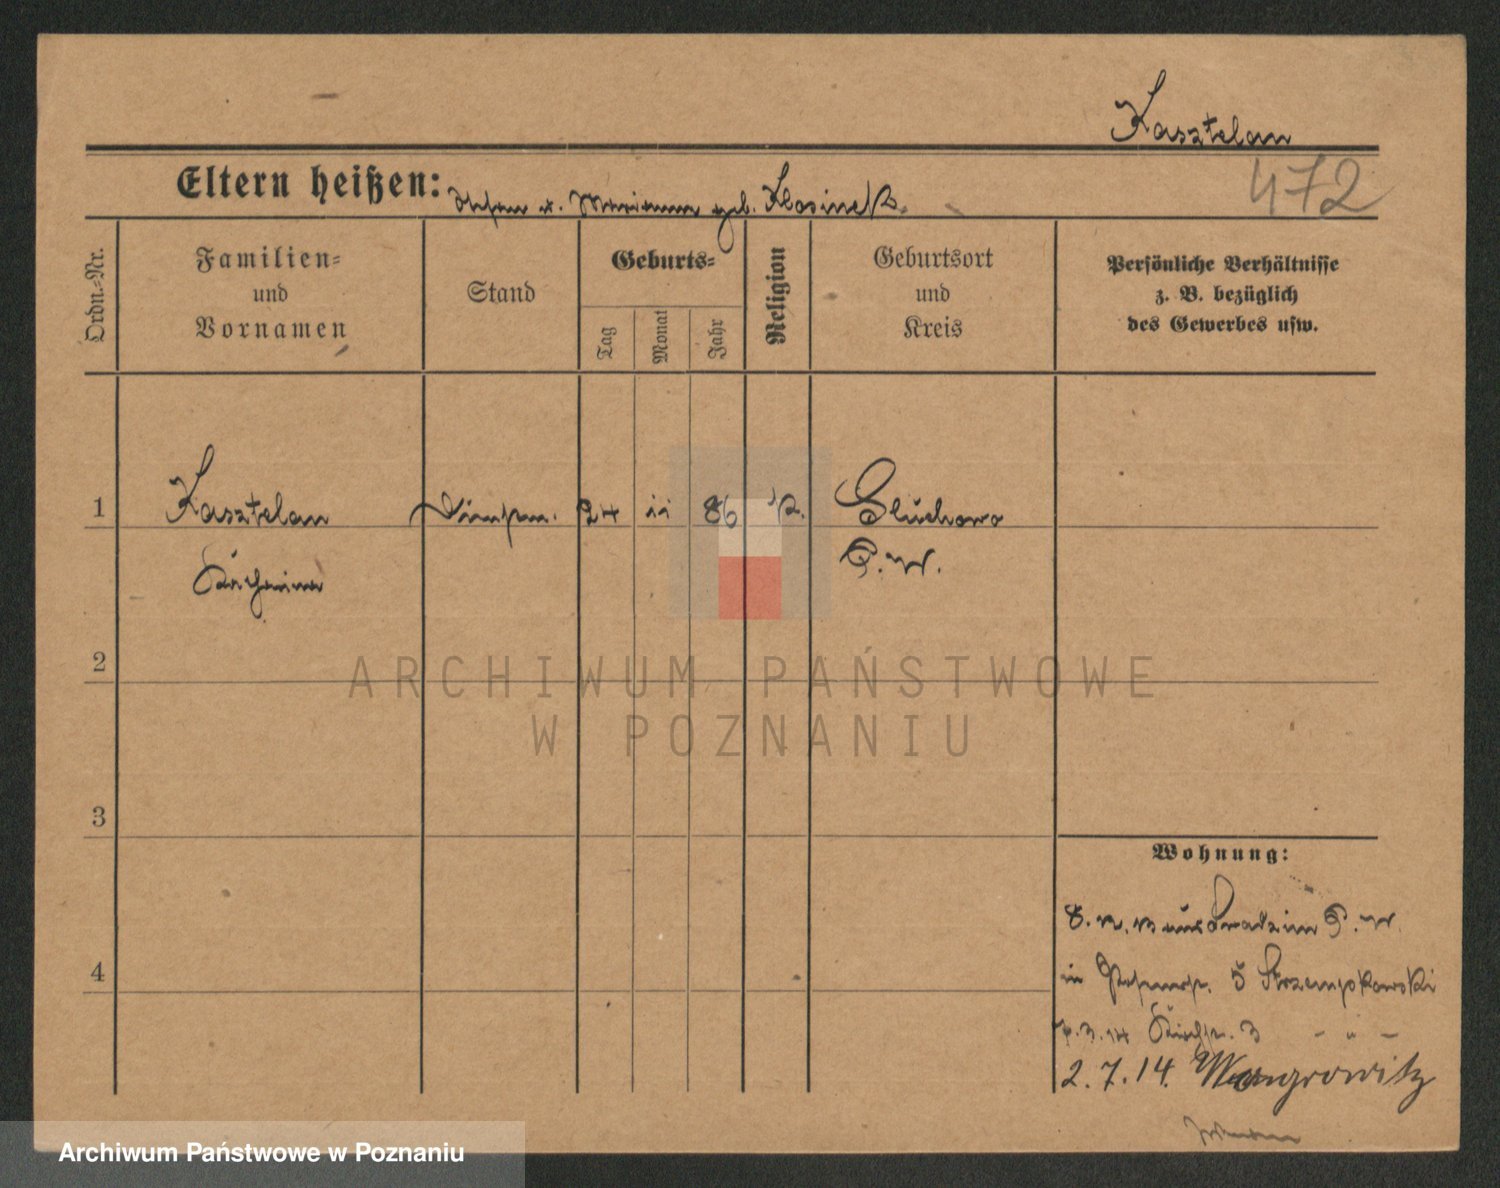 Kasztelan
472
Eltern heißen: u. Marianna geb. Klosinek.
Ordn.-Nr.
Familien-
und
Vornamen
Stand
Geburts-
Tag
Monat
Jahr
Religion
Geburtsort
und
Kreis
Persönliche Verhältnisse
z. B. bezüglich
des Gewerbes usw.
1 Kasztelan 24 11 86 k. Gluchowo
P. W.
2
3
4
Wohnung:
aus P. W.
in 5 Strzempkowski
3 - " -
2.7.14. Wongrowitz
ARCHIWUM PAŃSTWOWE
W POZNANIU
Archiwum Państwowe w Poznaniu